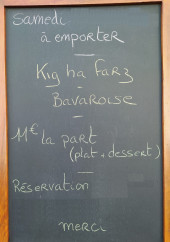 Samedi
à emporter
Kig ha farz
Bavaroise
11€ la part
(plat + dessert)
Réservation
merci